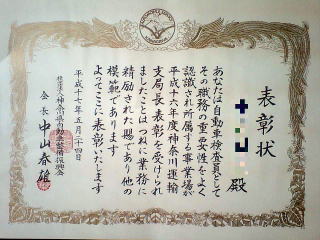 表彰状
殿
あなたは自動車検査員として
その職務の重要性をよく
認識され所属する事業場が
平成十六年度神奈川運輸
支局長表彰を受けられ
ましたことはつねに業務に
精励された賜であり他の
模範であります
よってここに表彰いたします
平成十七年五月二十四日
社団法人神奈川県自動車整備振興会
会長 中山春雄